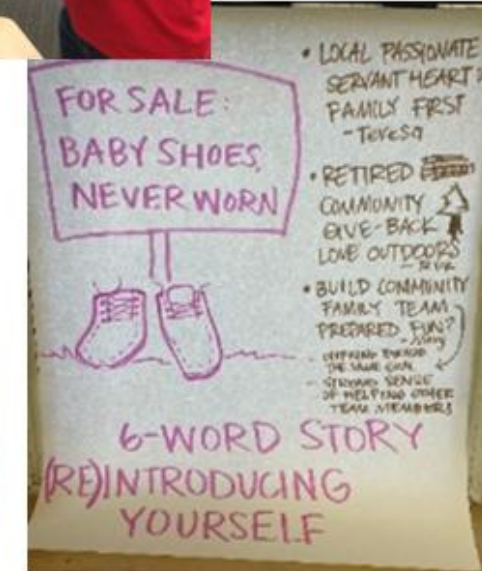 FOR SALE:
BABY SHOES,
NEVER WORN
• LOCAL PASSIONATE
SERVANT HEART
FAMILY FIRST
- Teresa
• RETIRED
COMMUNITY
GIVE-BACK
LOVE OUTDOORS
• BUILD COMMUNITY
FAMILY TEAM
PREPARED FUN?
THE SAME GOAL
- STRONG SENSE
OF HELPING OTHER
TEAM MEMBERS
6-WORD STORY
(RE)INTRODUCING
YOURSELF